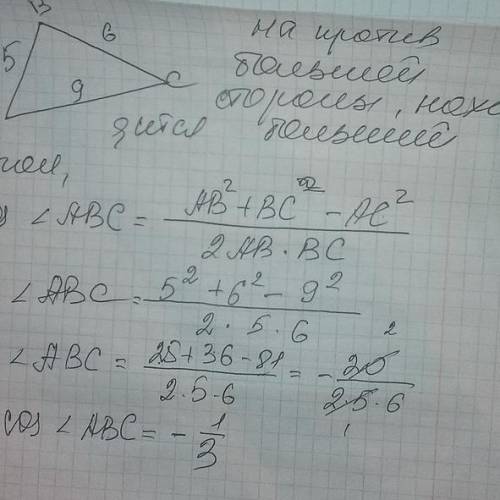 B
6
5
9
C
на против
большей
стороны, нахо
дится больший
∠ABC = (AB² + BC² - AC²) / (2AB · BC)
∠ABC = (5² + 6² - 9²) / (2 · 5 · 6)
∠ABC = (25 + 36 - 81) / (2 · 5 · 6) = -
cos ∠ABC = - 1/3